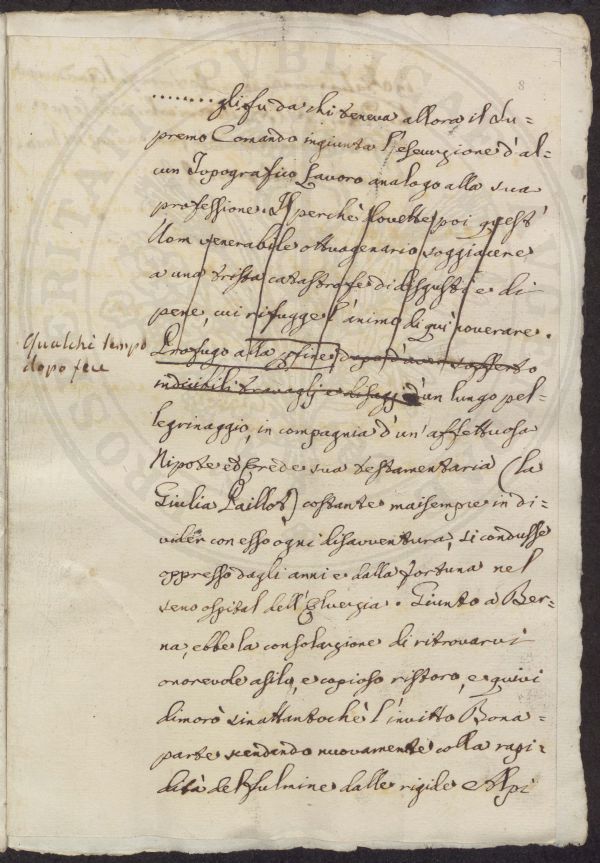 8
........ gli fu da chi teneva allora il Su=
premo Comando ingiunta l'esecuzione d'al=
cun Topografico Lavoro analogo alla sua
professione. Il perchè dovette poi quest'
Uom venerabile ottuagenario soggiacere
a una trista catastrofe di disgusti e di
pene, cui rifugge l'animo di quì noverare.
Qualche tempo
dopo fece
Profugo alla perfine, dopo d'aver sofferto
indicibili travaglj e disagj d'un lungo pel=
legrinaggio, in compagnia d'un'affettuosa
Nipote ed Erede sua testamentaria (la
Giulia Paillot) costante maisempre in di=
vider con esso ogni disavventura, si condusse
oppresso dagli anni e dalla fortuna nel
seno ospital dell'Elvezia. Giunto a Ber=
na, ebbe la consolazione di ritrovarvi
onorevole asilo, e copioso ristoro, e quivi
dimorò sinattantochè l'invitto Bona=
parte scendendo nuovamente colla rapi=
dità del fulmine dalle rigide Alpi